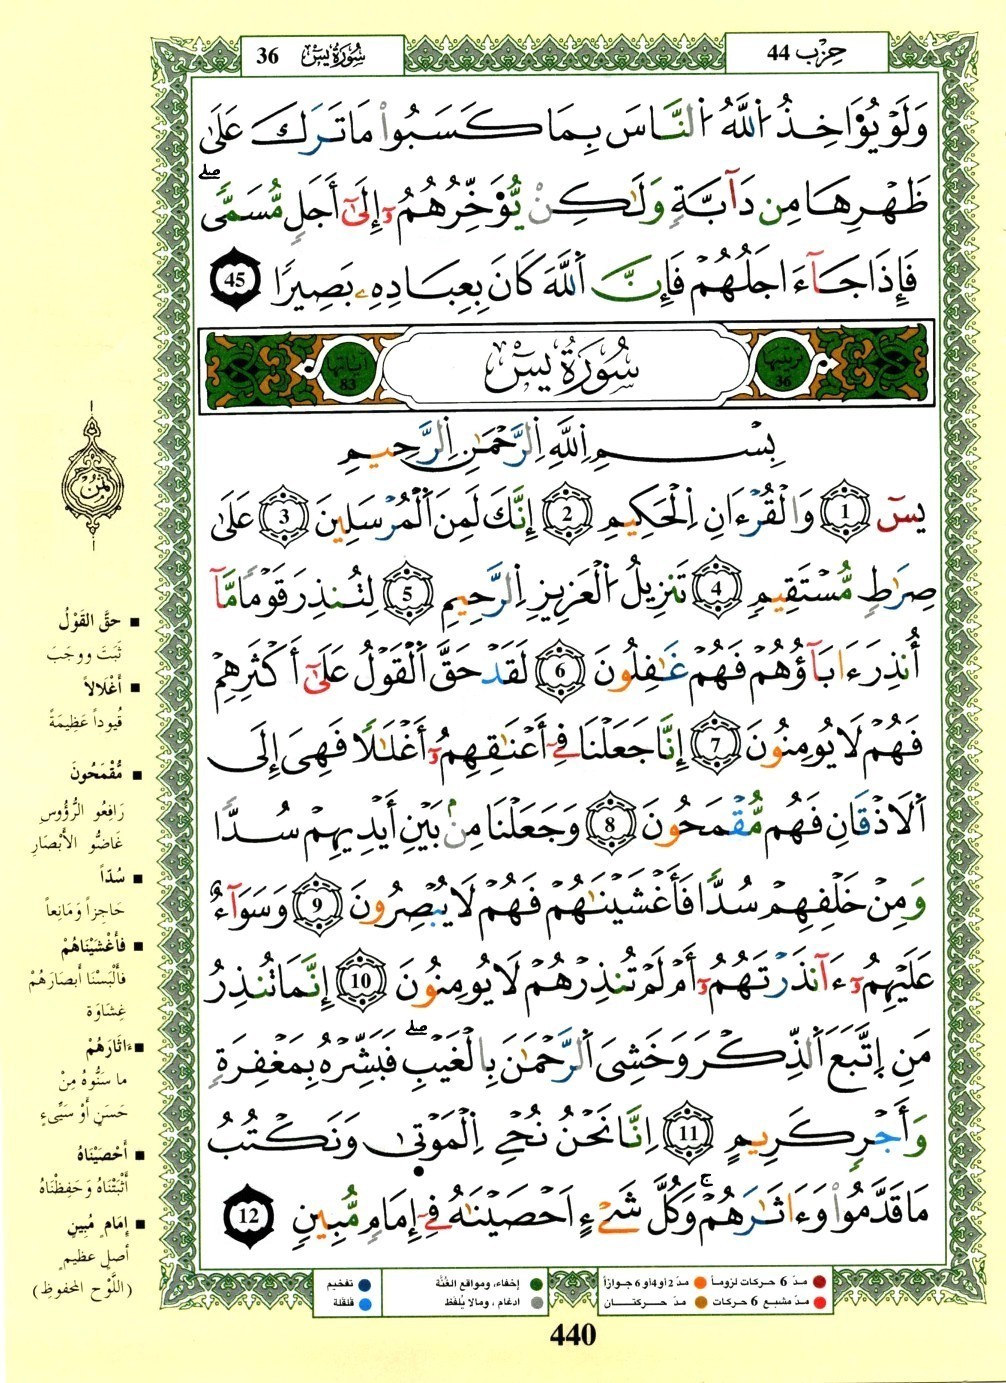 حِزْب 44
سُورَةُ يسٓ 36
وَلَوْ يُوَ۬اخِذُ اُ۬للَّهُ اُ۬لنَّاسَ بِمَا كَسَبُواْ مَا تَرَكَ عَلَىٰ
ظَهْرِهَا مِن دَآبَّةٖ وَلَٰكِنْ يُّوَ۬خِّرُهُمُۥٓ إِلَىٰٓ أَجَلٖ مُّسَمّىٗۖ
فَإِذَا جَآءَ اجَلُهُمْ فَإِنَّ اَ۬للَّهَ كَانَ بِعِبَادِهِۦ بَصِيرٗا 45
ترتيبها 36
سُورَةُ يسٓ
آياتها 83
بِسْمِ اِ۬للَّهِ اِ۬لرَّحْمَٰنِ اِ۬لرَّحِيمِ
يسٓ 1 وَالْقُرْءَانِ اِ۬لْحَكِيمِ 2 إِنَّكَ لَمِنَ اَ۬لْمُرْسَلِينَ 3 عَلَىٰ
صِرَٰطٖ مُّسْتَقِيمٖ 4 تَنزِيلُ اُ۬لْعَزِيزِ اِ۬لرَّحِيمِ 5 لِتُنذِرَ قَوْماٗ مَّآ
أُنذِرَ ءَابَآؤُهُمْ فَهُمْ غَٰفِلُونَ 6 لَقَدْ حَقَّ اَ۬لْقَوْلُ عَلَىٰٓ أَكْثَرِهِمْ
فَهُمْ لَا يُومِنُونَ 7 إِنَّا جَعَلْنَا فِےٓ أَعْنَٰقِهِمُۥٓ أَغْلَٰلاٗ فَهِيَ إِلَى
اَ۬لَاذْقَانِ فَهُم مُّقْمَحُونَ 8 وَجَعَلْنَا مِنۢ بَيْنِ أَيْدِيهِمْ سُدّاٗ
وَمِنْ خَلْفِهِمْ سُدّاٗ فَأَغْشَيْنَٰهُمْ فَهُمْ لَا يُبْصِرُونَ 9 وَسَوَآءٌ
عَلَيْهِمُۥٓ ءَآنذَرْتَهُمُۥٓ أَمْ لَمْ تُنذِرْهُمْ لَا يُومِنُونَ 10 إِنَّمَا تُنذِرُ
مَنِ اِ۪تَّبَعَ اَ۬لذِّكْرَ وَخَشِيَ اَ۬لرَّحْمَٰنَ بِالْغَيْبِۖ فَبَشِّرْهُ بِمَغْفِرَةٖ
وَأَجْرٖ كَرِيمٍ 11 اِنَّا نَحْنُ نُحْيِ اِ۬لْمَوْتَىٰ وَنَكْتُبُ
مَا قَدَّمُواْ وَءَاثَٰرَهُمْۚ وَكُلَّ شَےْءٍ اَحْصَيْنَٰهُ فِےٓ إِمَامٖ مُّبِينٖ 12
ثمن
حقَّ القَوْلُ
ثَبَتَ ووجَبَ
أغْلَالاً
قُيوداً عَظِيمَةً
مُّقْمَحُونَ
رَافِعُو الرُّؤُوسِ
غَاضُّو الأَبْصَارِ
سُدّاً
حَاجزاً وَمَانِعاً
فأغْشَيْنَاهُمْ
فَأَلْبَسْنَا أبصَارَهُمْ
غِشَاوَة
ءَاثَارَهُمْ
ما سَنُّوهُ مِنْ
حَسَنٍ أوْ سَيِّىءٍ
أحْصَيْنَاهُ
أثْبَتْنَاهُ وَحَفِظْنَاهُ
إمَامٍ مُبِينٍ
أصلٍ عظيمٍ
(اللَّوْحِ المَحْفُوظِ)
مدّ 6 حركات لزوماً مدّ 2 أو 4 أو 6 جوازاً إخفاء، ومواقع الغُنَّة تفخيم
مدّ مشبع 6 حركات مدّ حركتان ادغام ، ومالا يُلفَظ قلقلة
440